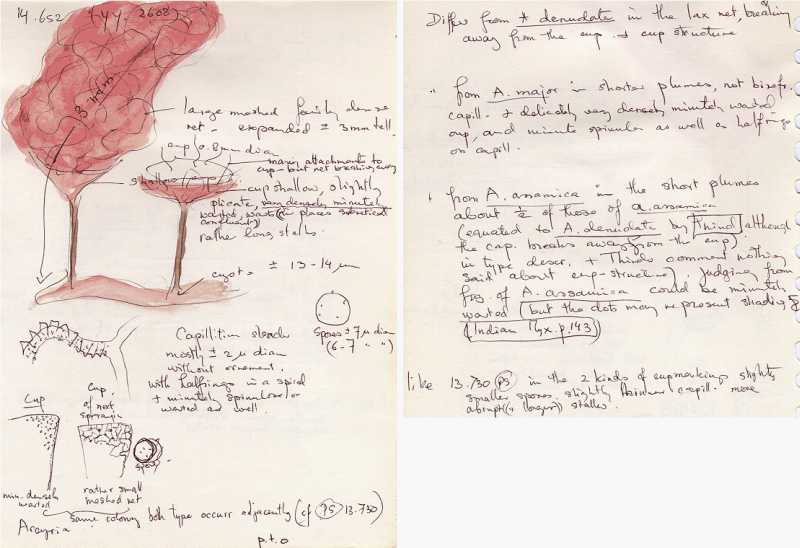 14.652 (YY. 2608)
3 mm
large meshed fairly dense
net - expanded ± 3mm tall.
cup 0.8mm dia
many attachments to
cup - but net breaking away
shallow cup
cup shallow, slightly
plicate, very densely minutely
warted, warts (in places
confluent)
rather long stalks.
cyst = ± 13-14 µm
Spores ± 7 µ diam
(6-7 " ")
Capillitium slender
mostly ± 2 µ diam
without ornament.
with halfrings in a spiral
+ minutely spinulose or
warted as well.
Cup
min. densely
warted
Cup
of next
sporangia
rather small
meshed net
same colony both type occurr adjacently (cf PS 13.730)
Arcyria
p.t.o
Differ from * denudata in the lax net, breaking
away from the cup. + cup structure
" from A. major in shorter plumes, not
capill. + delicately very densely minutely warted
cup, and minute spinules as well as halfrings
on capill.
+ from A. assamica in the short plumes
about ½ of those of a. assamica
(equated to A. denudata by Thind although
the cap. breaks away from the cup)
in type descr. + Thinds comment nothing
said about cup-structure), judging from
fig. of A. assamica could be minutely
warted (but the dots may represent shading
(Indian Myx. p. 143)
like 13.730 PS in the 2 kinds of cupmarking slightly
smaller spores, slightly thinner capill. more
abrupt (+ longer) stalks.